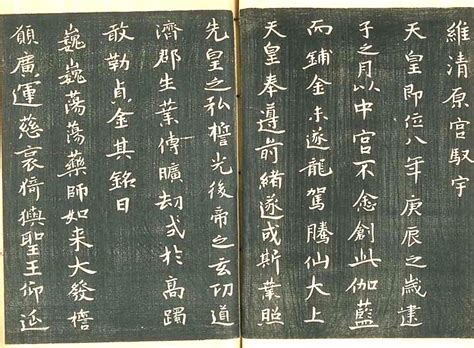 維清原宮馭宇
天皇即位八年庚辰之歳建
子之月以中宮不悆創此伽藍
而鋪金未遂龍駕騰仙大上
天皇奉遵前緒遂成斯業照
先皇之弘誓光後帝之玄功道
濟郡生業傳曠劫式於高躅
敢勒貞金其銘曰
巍巍蕩蕩藥師如来大發誓
願廣運慈哀猗與聖王仰延